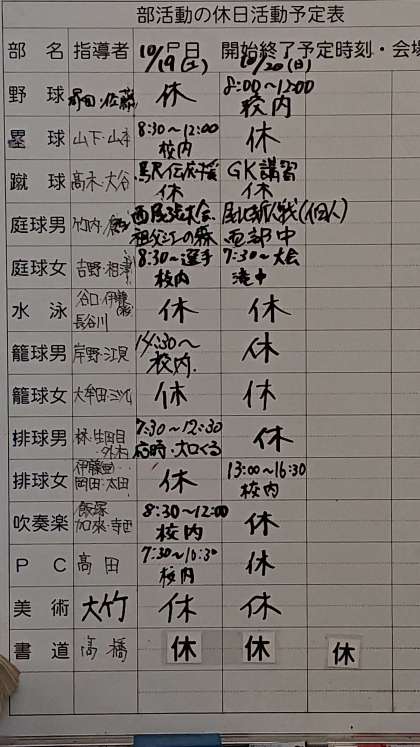 部活動の休日活動予定表
部 名 指導者 10/19(土) 日 開始終了予定時刻・会場
10/20(日)
野 球 ・佐藤 休 8:00〜12:00
校内
塁 球 山下・山本 8:30〜12:00 休
校内
蹴 球 高木・大谷 駅伝応援 GK講習
休 休
庭球男 竹内・ 西尾張大会 尾北新人戦(個人)
祖父江の森 西部中
庭球女 吉野・相津 8:30〜選手 7:30〜大会
校内 滝中
水 泳 谷口・伊藤 休 休
長谷川
籠球男 岸野・江見 14:30〜 休
校内
籠球女 大牟田・三ツ凡 休 休
排球男 林・生田目 7:30〜12:30 休
外村 ・大口くる
排球女 伊藤 休 13:00〜16:30
岡田・太田 校内
吹奏楽 飯塚 8:30〜12:00 休
加来・寺西 校内
P C 高田 7:30〜16:30 休
校内
美 術 大竹 休 休
書 道 高橋 休 休 休